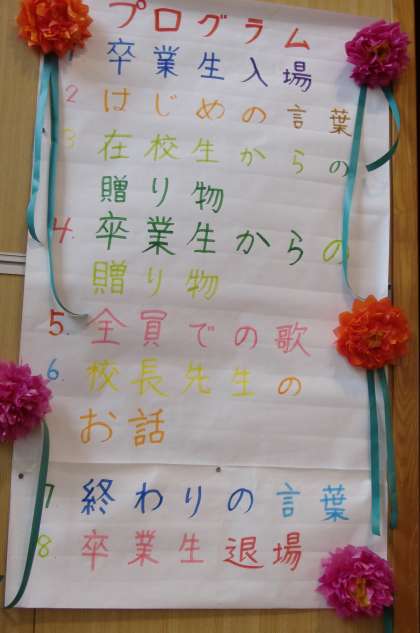 プログラム
1. 卒業生入場
2 はじめの言葉
3 在校生からの
贈り物
4. 卒業生からの
贈り物
5. 全員での歌
6. 校長先生の
お話
7 終わりの言葉
8. 卒業生退場